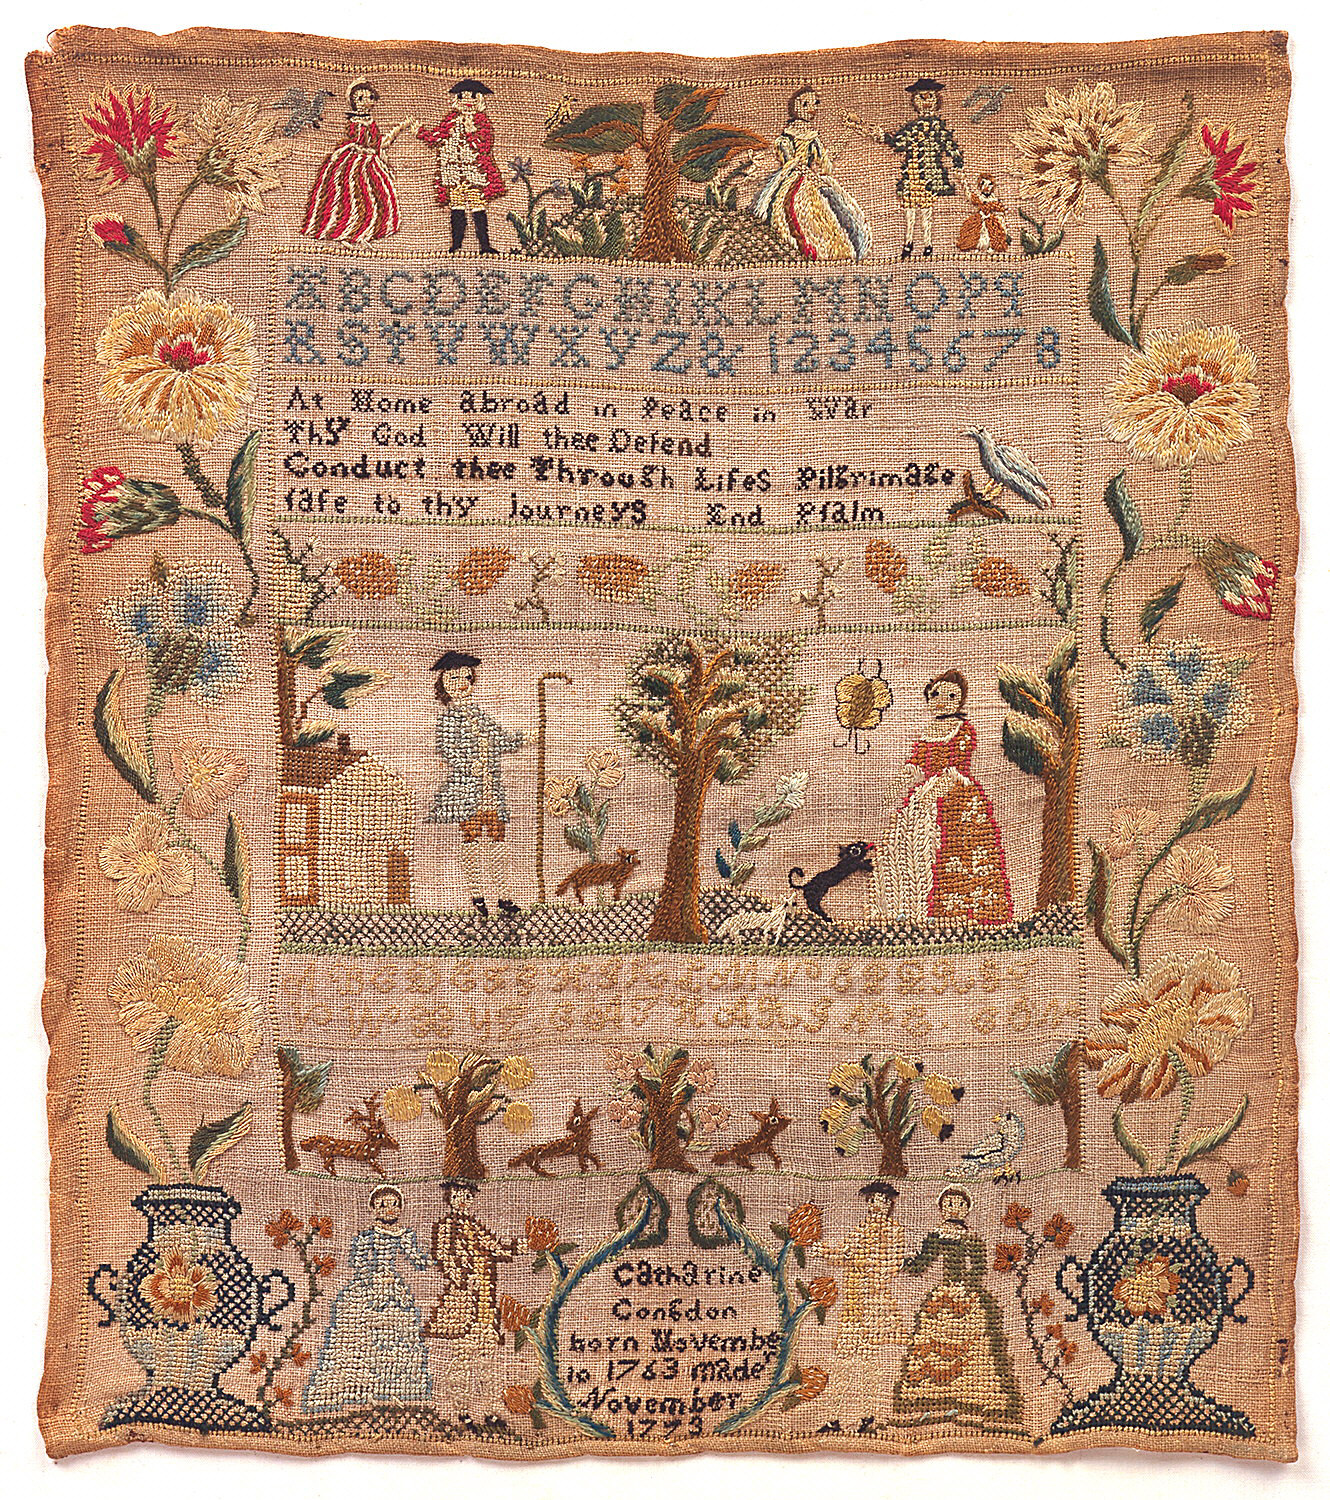 ABCDEFGHIKLMNOPQ
RSTVWXYZ& 12345678
At Home abroad in Peace in War
Thy God Will thee Defend
Conduct thee Through Lifes Pilgrimage
ſafe to thy journeys End Pſalm
Catharine
Congdon
born Novembe
10 1763 made
November
1773